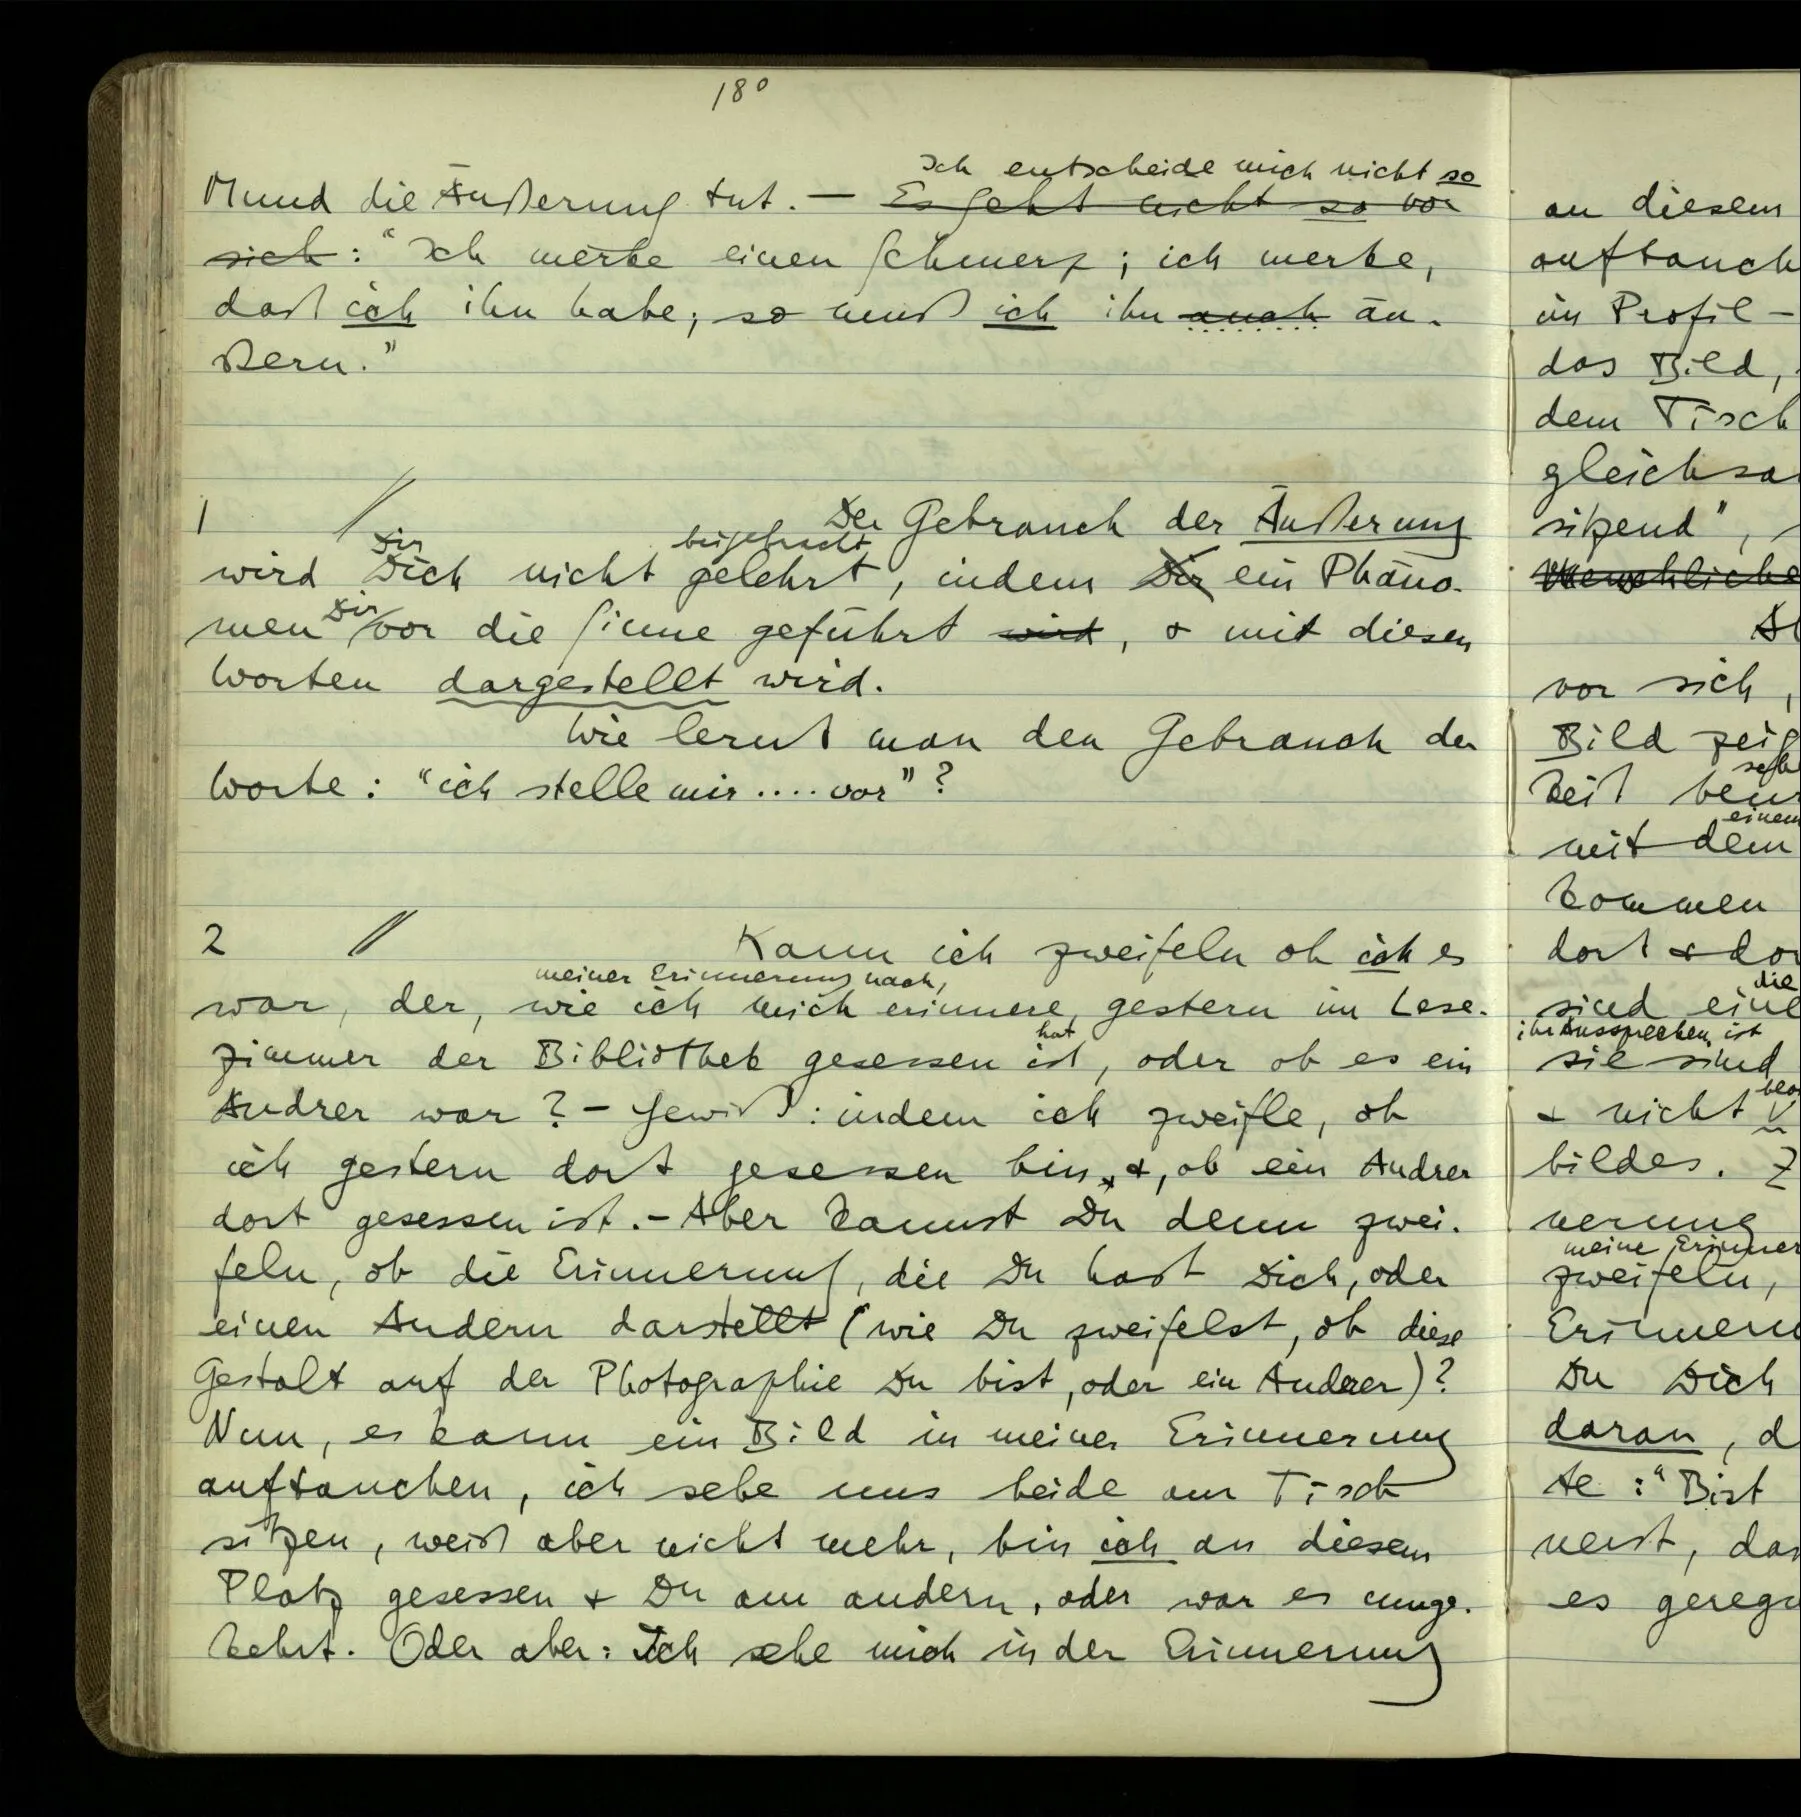 180
Ich entscheide mich nicht so
Mund die Äußerung tut. — Es geht nicht so vor
sich: “Ich merke einen Schmerz; ich merke,
daß ich ihn habe; so muß ich ihn auch äu-
ßern.”
1 // Der Gebrauch der Äußerung
Dir beigebracht
wird Dich nicht gelehrt, indem Dir ein Phäno-
Dir
men vor die Sinne geführt wird, & mit diesen
Worten dargestellt wird.
Wie lernt man den Gebrauch der
Worte: “ich stelle mir .... vor”?
2 // Kann ich zweifeln ob ich es
meiner Erinnerung nach,
war, der, wie ich mich erinnere, gestern im Lese-
hat
zimmer der Bibliothek gesessen ist, oder ob es ein
Andrer war? – Gewiß: indem ich zweifle, ob
ich gestern dort gesessen bin, &, ob ein Andrer
dort gesessen ist. – Aber kannst Du denn zwei-
feln, ob die Erinnerung, die Du hast Dich, oder
einen Andern darstellt (wie Du zweifelst, ob diese
Gestalt auf der Photographie Du bist, oder ein Anderer)?
Nun, es kann ein Bild in meiner Erinnerung
auftauchen, ich sehe uns beide am Tisch
sitzen, weiß aber nicht mehr, bin ich an diesem
Platz gesessen & Du am andern, oder war es umge-
kehrt. Oder aber: Ich sehe mich in der Erinnerung
an diesem
auftauch
im Profil –
das Bild,
dem Tisch
gleichsa
sitzend”,
Menschliche
vor sich,
Bild zeig
selb
keit beur
einem
mit dem
kommen
dort & dor
die
sind eine
ihr Aussprechen ist
sie sind
& nicht
bildes. Z
nerung
meine Erinner
zweifeln,
Erinneru
Du Dich
daran, d
te: “Bist
nerst, das
es gerega